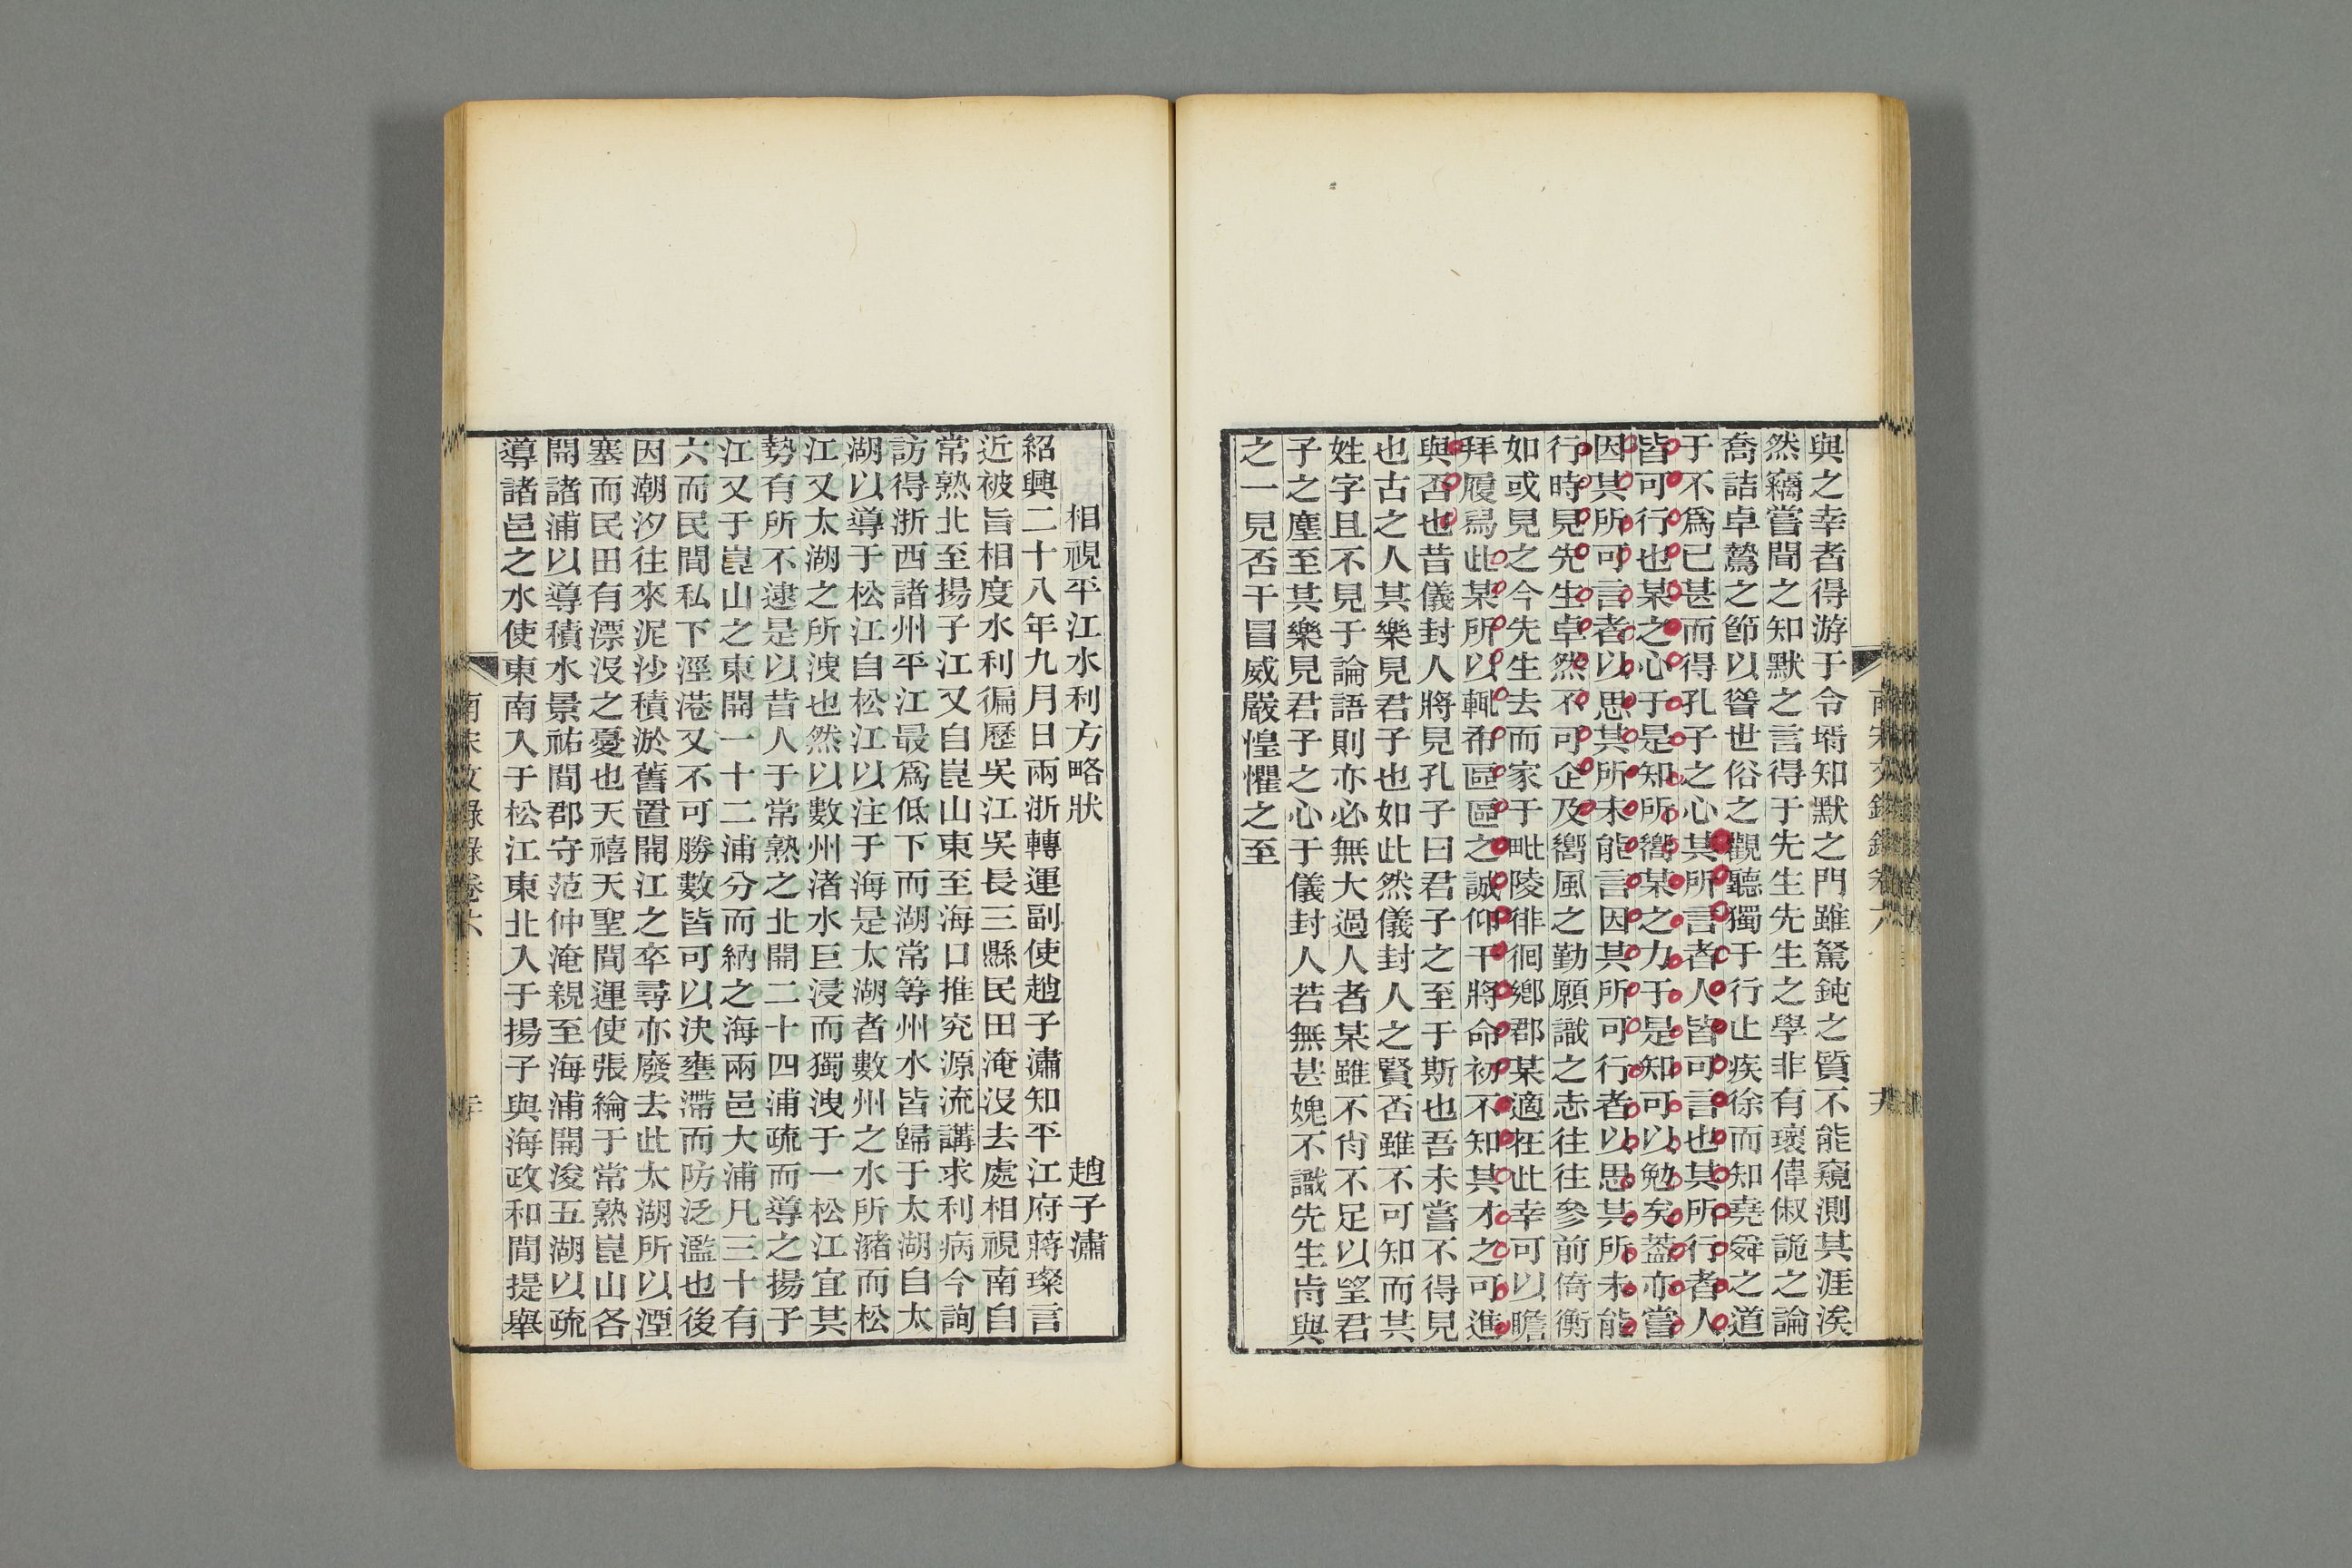 與之幸者得游于令壻知默之門雖駑鈍之質不能窺測其涯涘
然竊嘗聞之知默之言得于先生先生之學非有瓌偉俶詭之論
喬詰卓鷙之節以聳世俗之觀聽獨于行止疾徐而知堯舜之道
于不爲已甚而得孔子之心其所言者人皆可言也其所行者人
皆可行也某之心于是知所嚮某之力于是知可以勉矣葢亦嘗
因其所可言者以思其所未能言因其所可行者以思其所未能
行時見先生卓然不可企及嚮風之勤願識之志往往參前倚衡
如或見之今先生去而家于毗陵徘徊鄉郡某適在此幸可以瞻
拜履舄此某所以輒布區區之誠仰干將命初不知其才之可進
與否也昔儀封人將見孔子曰君子之至于斯也吾未嘗不得見
也古之人其樂見君子也如此然儀封人之賢否雖不可知而其
姓字且不見于論語則亦必無大過人者某雖不肖不足以望君
子之塵至其樂見君子之心于儀封人若無甚媿不識先生肯與
之一見否干冒威嚴惶懼之至
南宋文錄錄卷六 十九
相視平江水利方略狀 趙子潚
紹興二十八年九月日兩浙轉運副使趙子潚知平江府蔣璨言
近被旨相度水利徧歷吳江吳長三縣民田淹沒去處相視南自
常熟北至揚子江又自崑山東至海口推究源流講求利病今詢
訪得浙西諸州平江最爲低下而湖常等州水皆歸于太湖自太
湖以導于松江自松江以注于海是太湖者數州之水所瀦而松
江又太湖之所洩也然以數州渚水巨浸而獨洩于一松江宜其
勢有所不逮是以昔人于常熟之北開二十四浦疏而導之揚子
江又于崑山之東開一十二浦分而納之海兩邑大浦凡三十有
六而民間私下涇港又不可勝數皆可以決壅滯而防泛濫也後
因潮汐往來泥沙積淤舊置開江之卒尋亦廢去此太湖所以湮
塞而民田有漂沒之憂也天禧天聖間運使張綸于常熟崑山各
開諸浦以導積水景祐間郡守范仲淹親至海浦開浚五湖以疏
導諸邑之水使東南入于松江東北入于揚子與海政和間提舉
南宋文錄錄卷六 二十